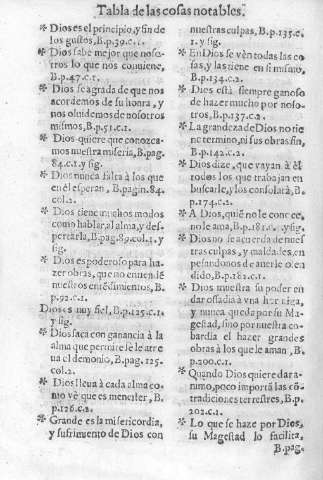 Tabla de las cosas notables.
* Dios es el principio, y fin de
los gustos, B.p.39.c.1.
* Dios sabe mejor que noso-
tros lo que nos conuiene,
B.p.47.c.1.
* Dios se agrada de que nos
acordemos de su honra, y
nos oluidemos de nosotros
mismos, B.p.51.c.1.
* Dios quiere que conozca-
mos nuestra miseria, B.pag.
84.c.1.y sig.
* Dios nunca falta à los que
en èl esperan, B.pagin.84.
col.2.
* Dios tiene muchos modos
como hablar, al alma, y des-
pertarla, B.pag.89.col.1.y
sig.
* Dios es poderoso para ha-
zer obras, que no entiendẽ
nuestros entẽdimientos, B.
p.92.c.1.
Dios es muy fiel, B.p.125.c.1.
y sig.
* Dios saca con ganancia à la
alma que permite se le atre
ua el demonio, B.pag.125.
col.2.
* Dios lleua à cada alma co-
mo vè que es menester, B.
p.126.c.2.
* Grande es la misericordia,
y sufrimiento de Dios con
nuestras culpas, B.p.135.c.
1.y sig.
* En Dios se vèn todas las co
sas, y las tiene en si mismo,
B.p.134.c.2.
* Dios està siempre ganoso
de hazer mucho por noso-
tros, B.p.137.c.2.
* La grandeza de Dios no tie
ne termino, ni sus obras fin,
B.p.142.c.2.
* Dios dize, que vayan à èl
todos los que trabajan en
buscarle, y los consolarà, B.
p.174.c.2.
* A Dios, quiẽ no le conoce,
no le ama, B.p.181.c. .y sig.
* Dios no se acuerda de nues
tras culpas, y maldades, en
pesandonos de auerle ofen
dido, B.p.181.c.1.
* Dios muestra su poder en
dar osadia à vna hormiga,
y nunca queda por su Ma-
gestad, sino por nuestra co-
bardia el hazer grandes
obras à los que le aman, B.
p.200.c.1.
* Quando Dios quiere dar a-
nimo, poco importã las cõ-
tradiciones terrestres, B.p.
202.c.1.
* Lo que se haze por Dios,
su Magestad lo facilita,
B.pag.